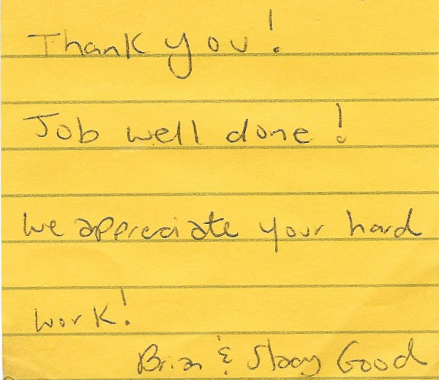 Thank you!
Job well done!
We appreciate your hard
work!
Brian & Stacy Good